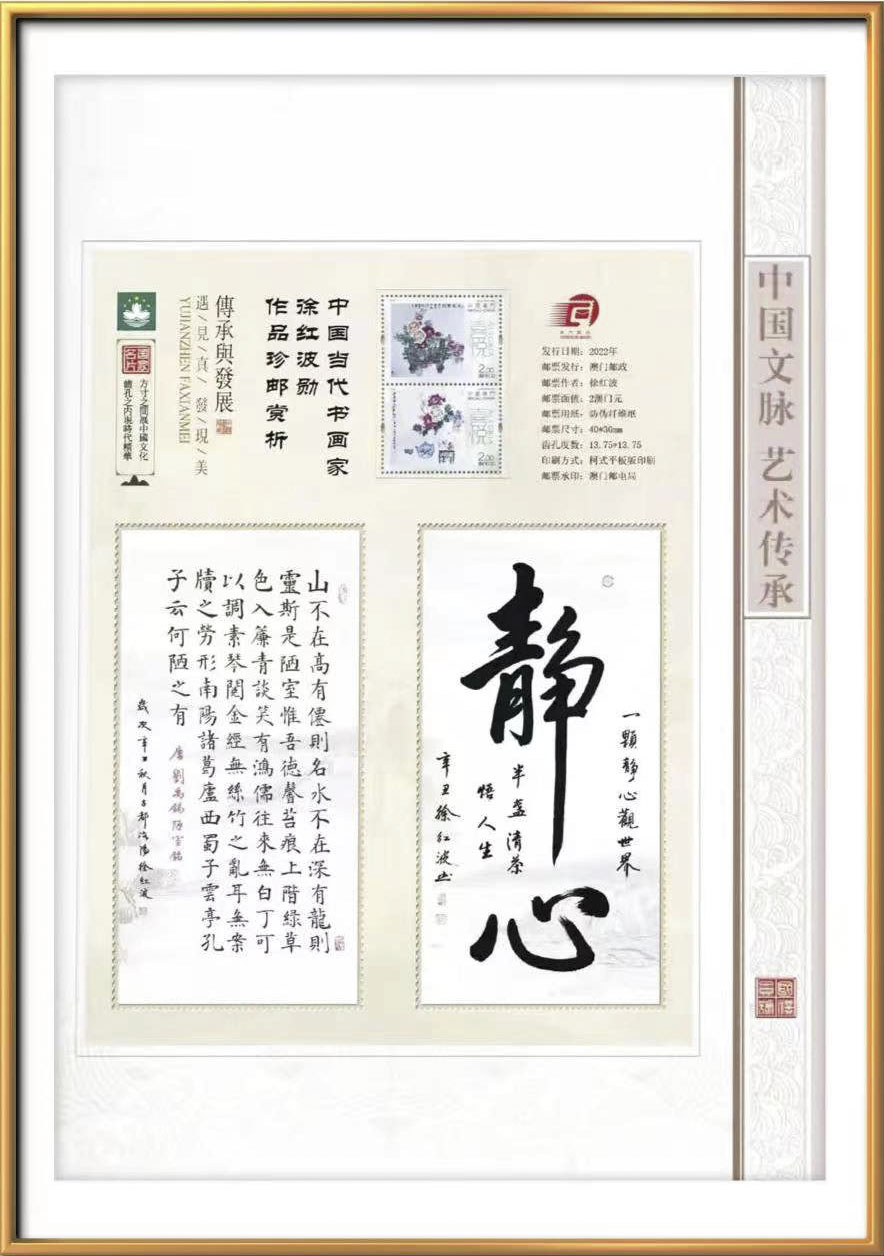 中国文脉 艺术传承
发行日期：2022年
邮票发行：澳门邮政
邮票作者：徐红波
邮票面值：2澳门元
邮票用纸：防伪纤维纸
邮票尺寸：40*30mm
齿孔度数：13.75*13.75
印刷方式：柯式平板版印刷
邮票承印：澳门邮电局
喜悦
2.00
喜悦
2.00
中国当代书画家
徐红波勋
作品珍邮赏析
傳承與發展
遇/見/真/發/現/美
YUJIANZHEN FAXIANMEI
国家名片
方寸之間展中國文化
齒孔之内現時代精華
一顆靜心觀世界
静心
半盏清茶
悟人生
辛丑徐红波书
山不在高有僊則名水不在深有龍則
靈斯是陋室惟吾德馨苔痕上階緑草
色入簾青談笑有鴻儒往來無白丁可
以調素琴閱金經無絲竹之亂耳無案
牘之勞形南陽諸葛廬西蜀子雲亭孔
子云何陋之有
唐劉禹錫陋室銘
歲次辛丑秋月古都洛陽徐红波